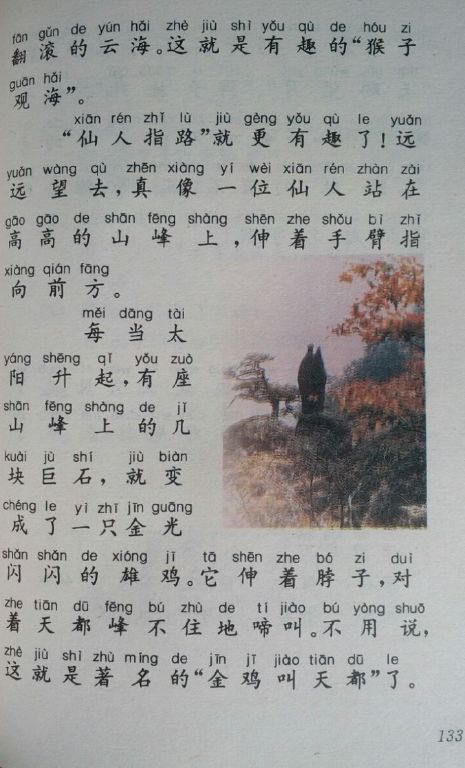 fān gǔn de yún hǎi zhè jiù shì yǒu qù de hóu zi
翻滚的云海。这就是有趣的“猴子
guān hǎi
观海”。
xiān rén zhǐ lù jiù gèng yǒu qù le yuǎn
“仙人指路”就更有趣了!远
yuǎn wàng qù zhēn xiàng yí wèi xiān rén zhàn zài
远望去,真像一位仙人站在
gāo gāo de shān fēng shàng shēn zhe shǒu bì zhǐ
高高的山峰上,伸着手臂指
xiàng qián fāng
向前方。
měi dāng tài
每当太
yáng shēng qǐ yǒu zuò
阳升起,有座
shān fēng shàng de jǐ
山峰上的几
kuài jù shí jiù biàn
块巨石,就变
chéng le yì zhī jīn guāng
成了一只金光
shǎn shǎn de xióng jī tā shēn zhe bó zi duì
闪闪的雄鸡。它伸着脖子,对
zhe tiān dū fēng bú zhù de tí jiào bú yòng shuō
着天都峰不住地啼叫。不用说,
zhè jiù shì zhù míng de jīn jī jiào tiān dū le
这就是著名的“金鸡叫天都”了。
133